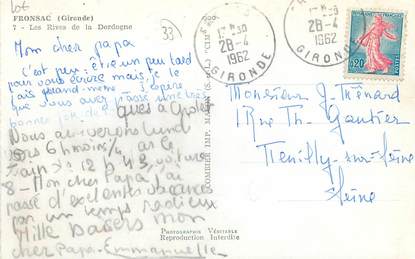 lot
FRONSAC (Gironde)
7 - Les Rives de la Dordogne
33
28-4
1962
GIRONDE
28-4
1962
GIRONDE
0,20
POSTES
Mon cher papa
C'est peu-être un peu tard
pour vous écrire mais, je le
fais quand-même. J'espère
que vous avez passé une très
bonne
Nous arriverons lundi
vers 6h moins 1/4 par le
train de 12 h 43, voiture
8 - Mon cher Papa, j'ai
passé d'excellentes vacances
par un temps radieux
Mille baisers mon
cher Papa - Emmanuelle
COMBIER IMP. MACON
Monsieur J. Ménard
1 Rue Th. Gautier
Neuilly-sur-Seine
Seine
PHOTOGRAPHIE VÉRITABLE
Reproduction Interdite